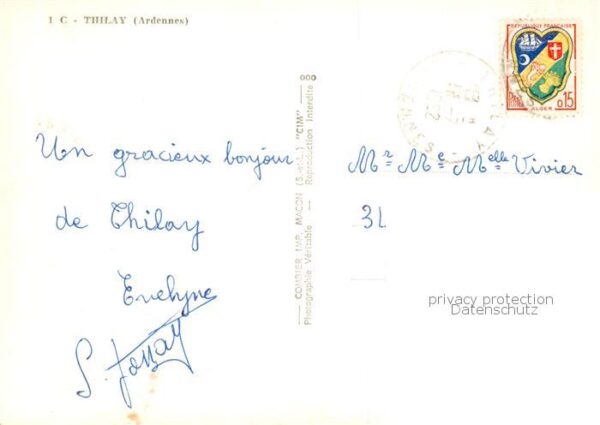 1 C - THILAY (Ardennes)
Un gracieux bonjour
de Thilay
Evelyne
COMBIER IMP. MACON (S.-et-L.) "CIM"
Photographie Véritable - Reproduction Interdite
Mr Me Melle Vivier
31
privacy protection
Datenschutz
REPUBLIQUE FRANÇAISE
0,15
ALGER